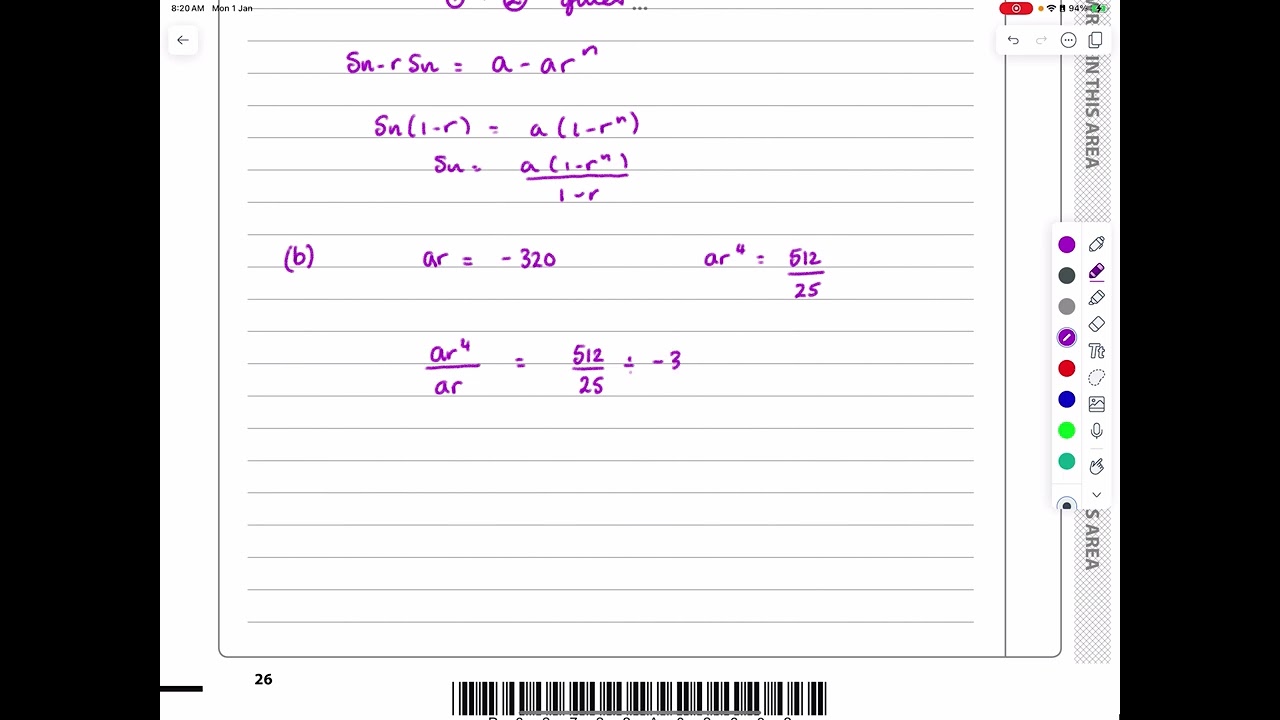 8:20 AM Mon 1 Jan
94%
Sn - r Sn = a - ar^n
Sn(1-r) = a(1-r^n)
Sn = a(1-r^n)
1-r
(b) ar = -320 ar^4 = 512
25
ar^4 = 512 ÷ -3
ar 25
26
IN THIS AREA
S AREA
Tt